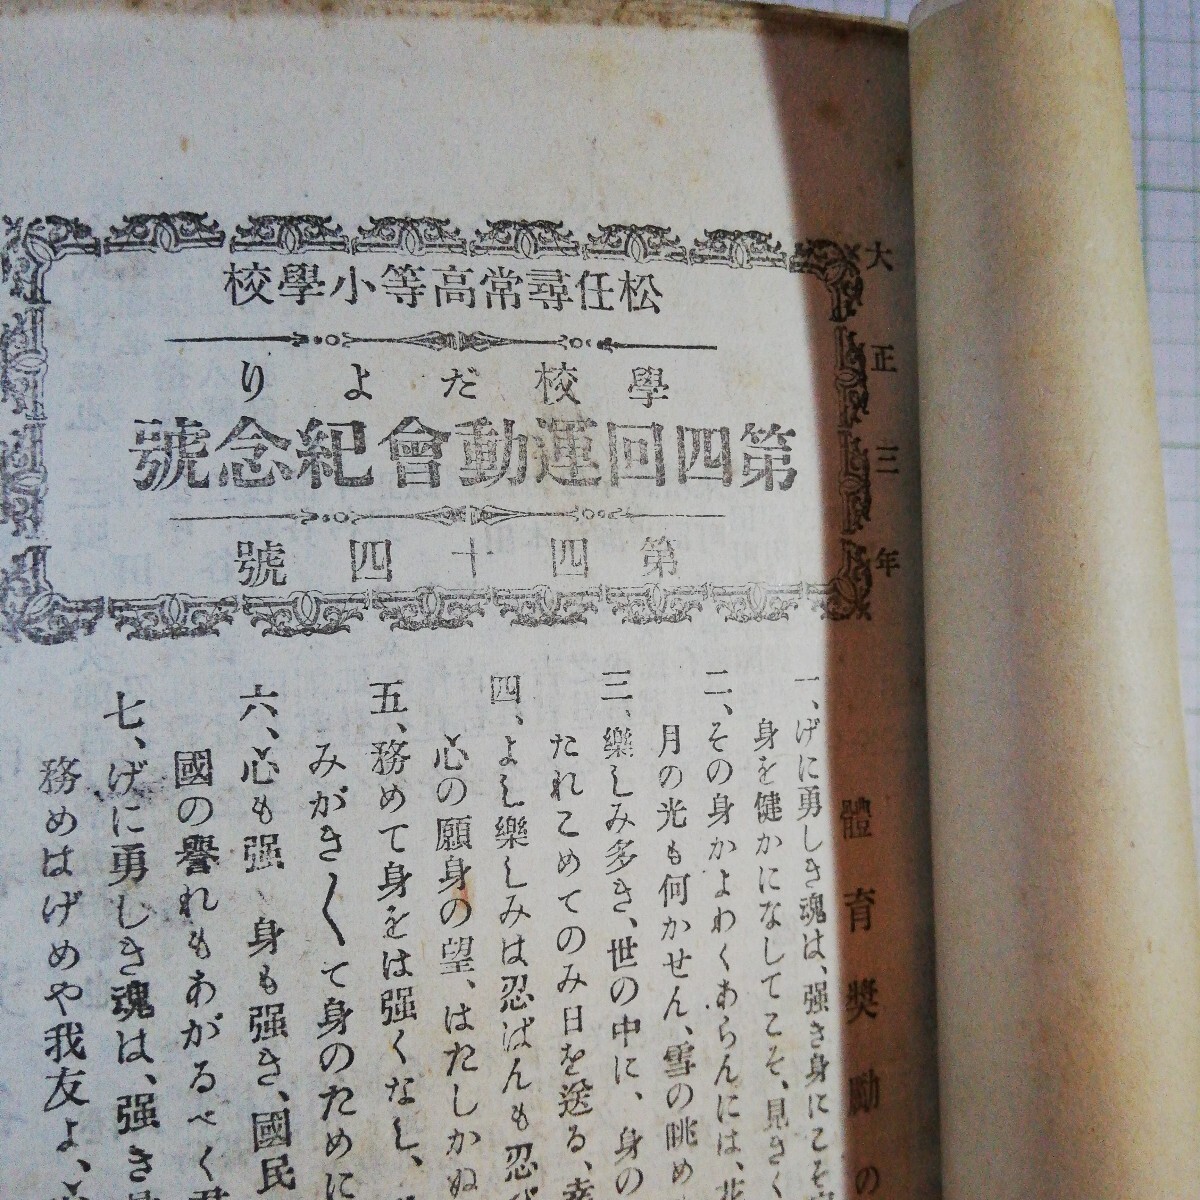 大正三年
松任尋常高等小學校
學校だより
第四回運動會紀念號
第四十四號
體育奬勵の
一、げに勇しき魂は、强き身にこそ
身を健かになしてこそ、見さく
二、その身かよわくあらんには、花
月の光も何かせん、雪の眺め
三、樂しみ多き、世の中に、身の
たれこめてのみ日を送る、幸
四、よし樂しみは忍ばんも忍び
心の願身の望、はたしかぬ
五、務めて身をは强くなし、
みがき〱て身のために
六、心も强、身も强き、國民
國の譽れもあがるべく君
七、げに勇しき魂は、强き身
務めはげめや我友よ、心